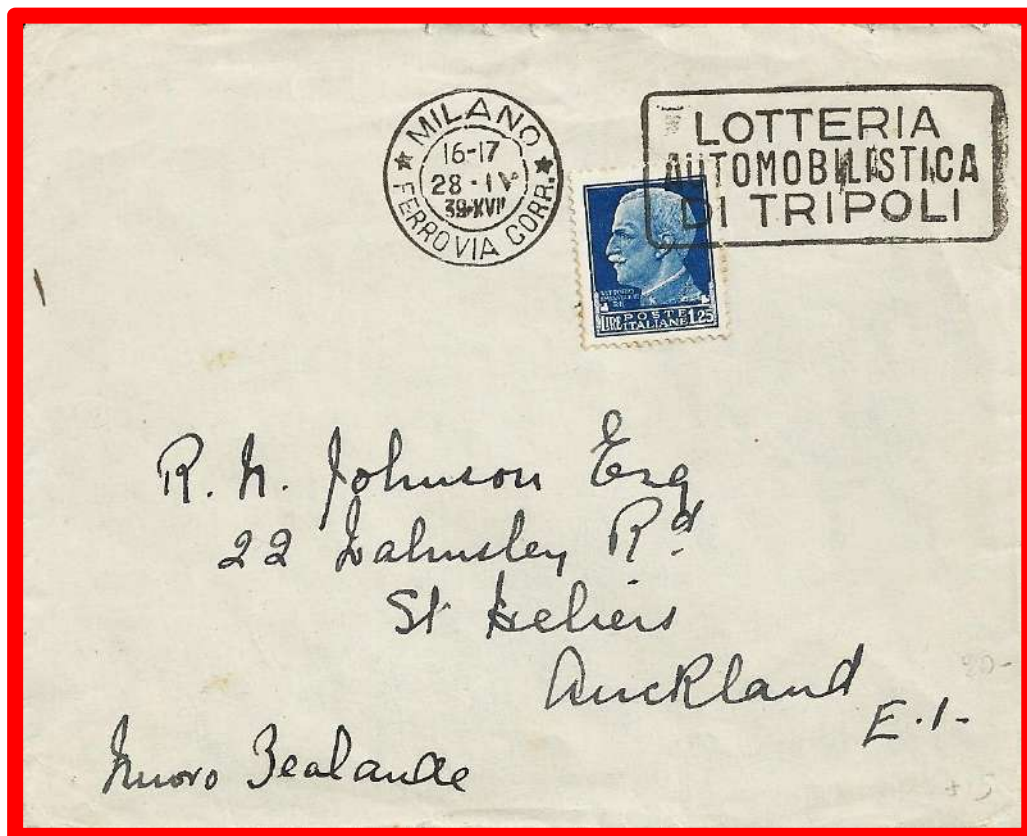 MILANO
16-17
28 · IV
39·XVII
FERROVIA CORR.
LOTTERIA
AUTOMOBILISTICA
DI TRIPOLI
VITTORIO
EMANUELE III
RE
LIRE POSTE ITALIANE 1.25
R. N. Johnson Esq
22 Walmsley Rd
St Heliers
Auckland
E.1-
Nuovo Zealande